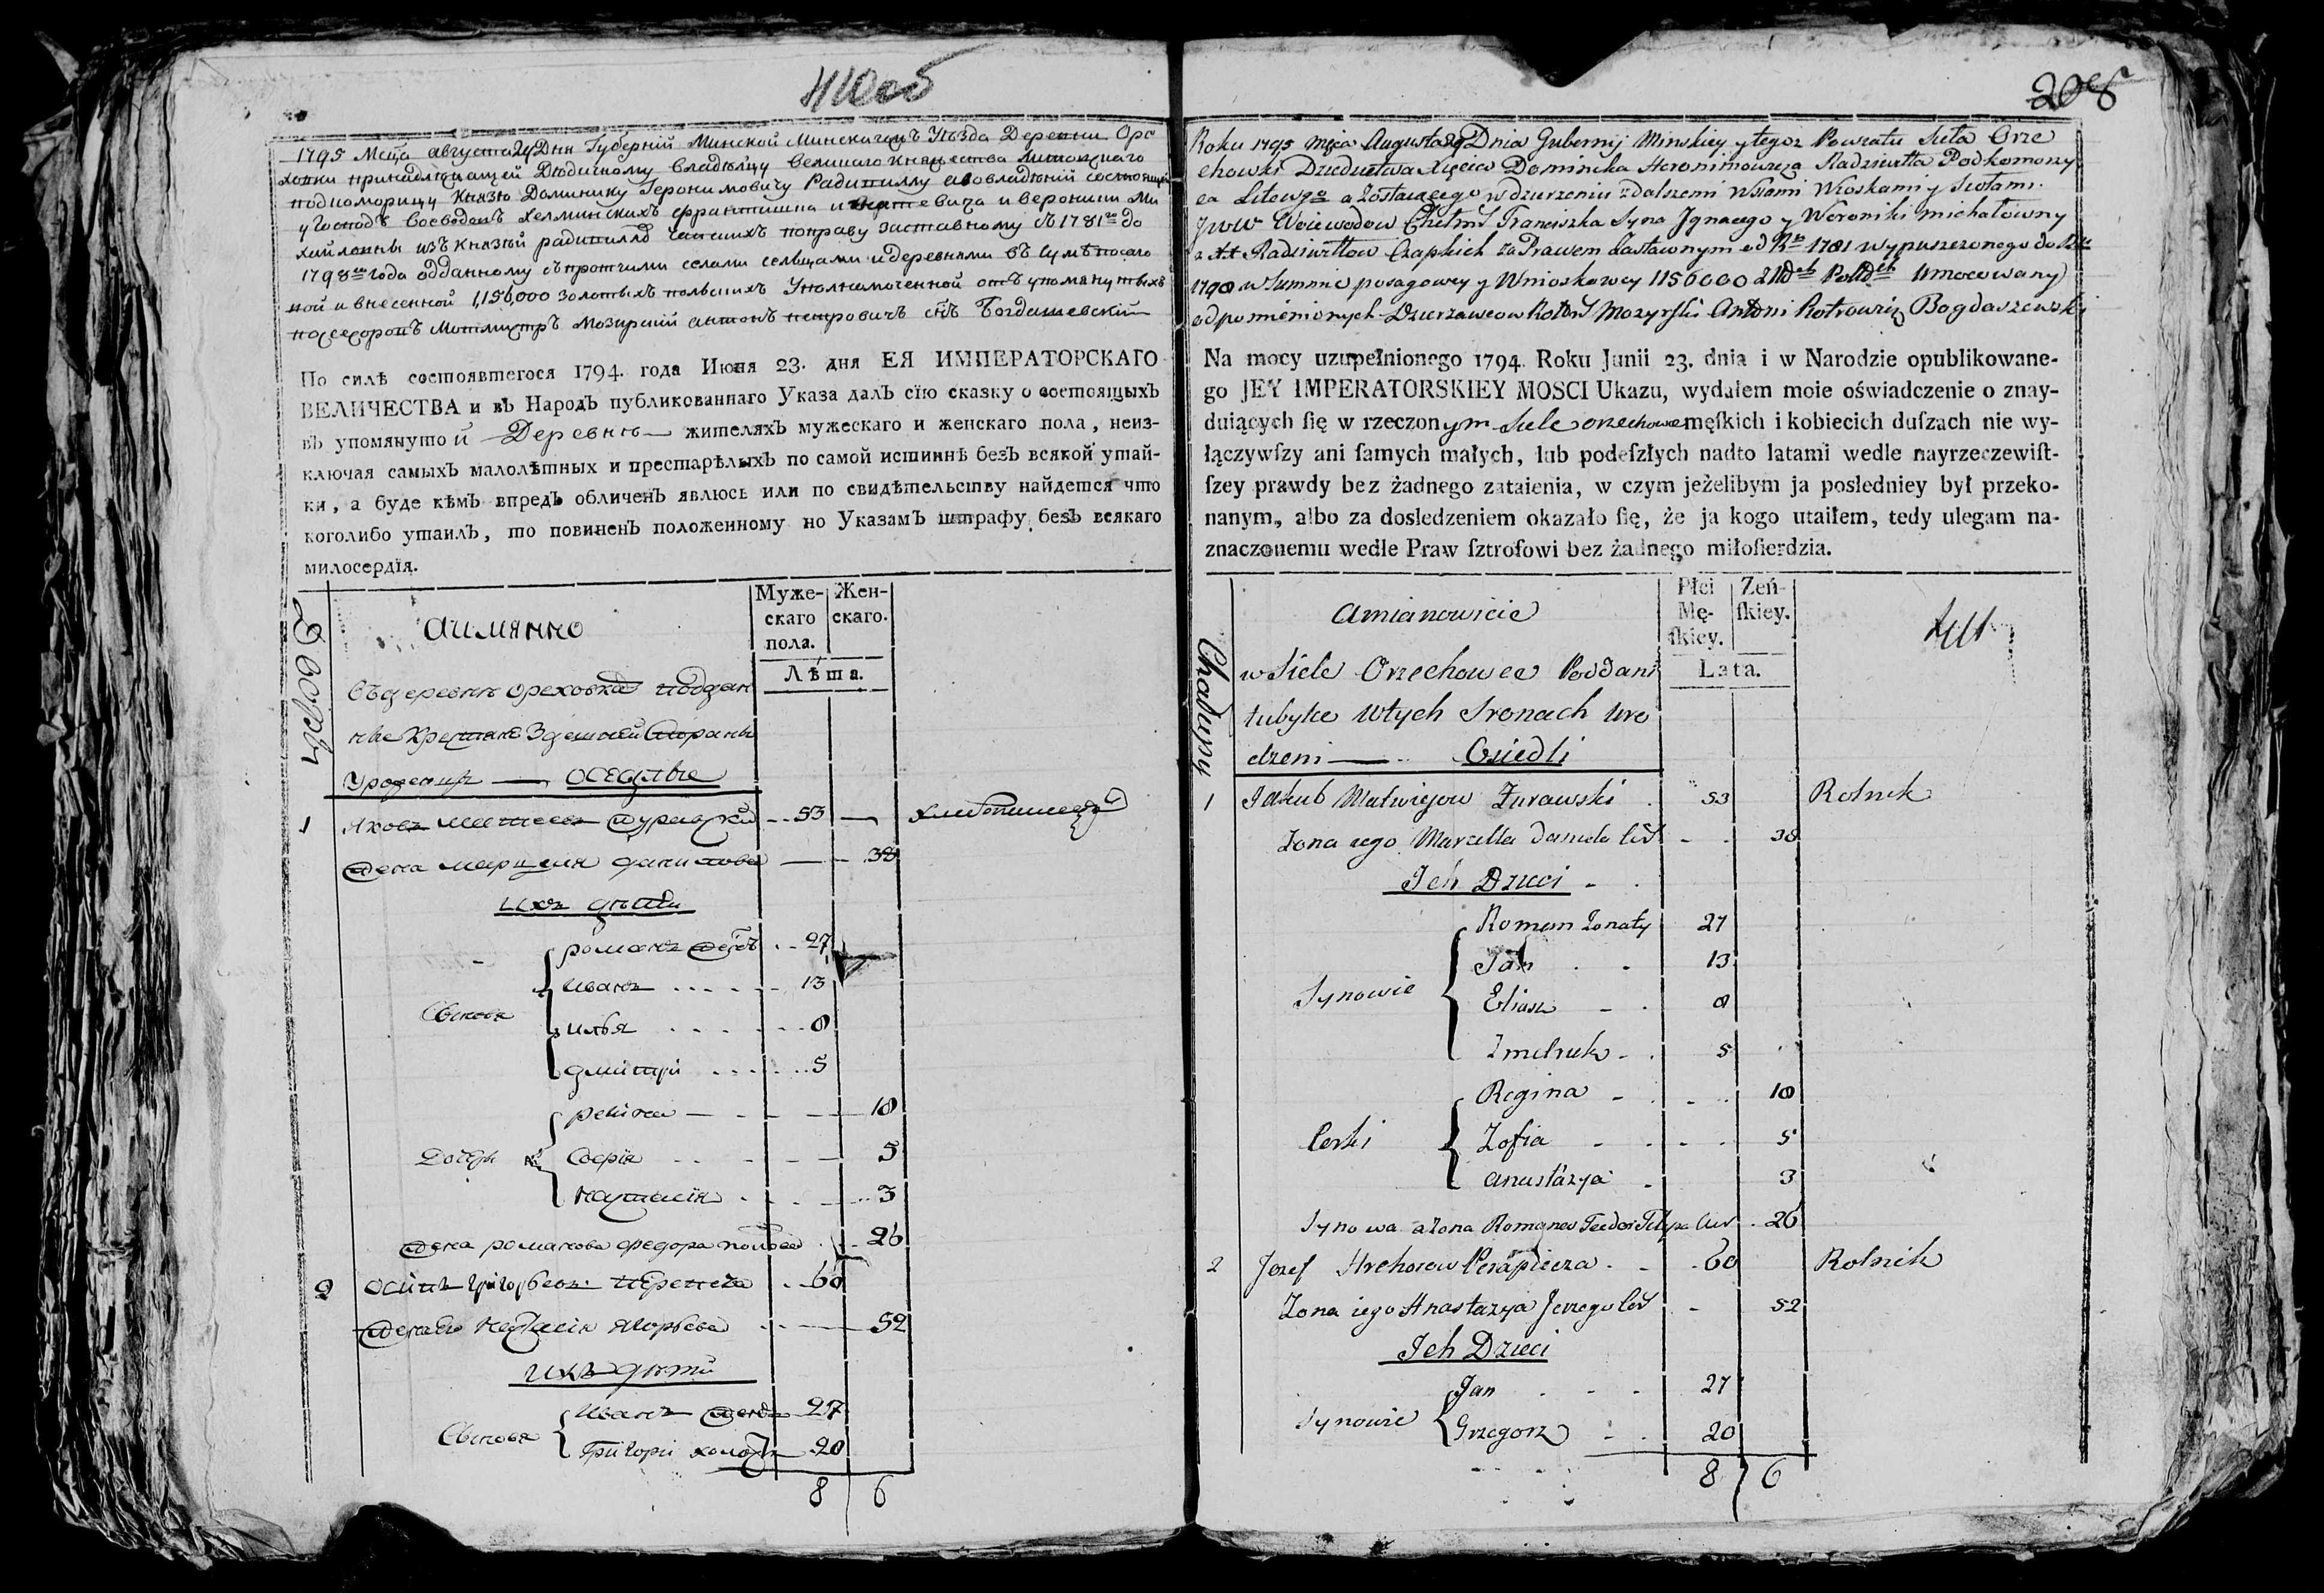 208
1795 Месца августа 29 Дня Губернїи Минской Минскагожъ Уѣзда Деревни Оре
ховки принадлежащей Дѣдичному Владѣльцу великаго Княжества Литовскаго
подкоморицу Князю Доминику Геронимовичу Радивиллу а во владѣнїи состоящей
у Господъ Воеводовъ Хелминскихъ Францишка и Веронии Ми
хайловны изъ Князей Радивиллъ Чапскихъ по праву заставному съ 1781го до
1798го года отданному съ протчими селами сельцами и деревнями въ сумѣ посаго
вой и внесенной 1,156,000 золотыхъ польскихъ Уполномоченной отъ упомянутыхъ
Мозирский антонъ петровичъ снъ Богдашевский
По силѣ состоявшегося 1794. года Июня 23. дня ЕЯ ИМПЕРАТОРСКАГО
ВЕЛИЧЕСТВА и въ Народъ публикованнаго Указа далъ сїю сказку о состоящыхъ
въ упомянутой Деревнѣ жителяхъ мужескаго и женскаго пола, неиз-
ключая самыхъ малолѣтных и престарѣлыхъ по самой истиннѣ безъ всякой утай-
ки, а буде кѣмъ впредъ обличенъ явлюсь или по свидѣтельству найдется что
коголибо утаилъ, то повиненъ положенному по Указамъ штрафу безъ всякаго
милосердїя.
Дворы
аимянно
Муже-
скаго
пола.
Жен-
скаго.
Лѣта.
Въ деревнѣ Ореховке поддан
ные Крестяне Здешней Стораны
Уроденцы — оседлые
1 Яковъ Матвеевъ Журавский 53 Хлебопашецъ
жена марцеля данилова 38
ихъ дѣти
Сыновя
романъ женатъ 27
иванъ 13
илья 8
дмитри 5
Дочери
регина 18
Софїя 5
настасїя 3
жена романова федора 26
2 осипъ григорьевъ 60
жена его настасїя Ягорьева 52
ихъ дѣти
Сыновя
иванъ женатъ 27
Григорїи холостъ 20
8 6
Roku 1795 mięca Augusta 29 Dnia Gubernij Minskiey y tegoz Powiatu Siela Orze
chowki Dziedzictwa Xięcia Dominika Heronimowicza Radziwiłła Podkomorzy
ca Litewgo a Zostaiącego w dzierzeniu z dalszemi Wsiami Wioskami y Siołami.
JWW Woiewodow Chełms Franciszka Syna Jgnacego y Weroniki Michałowny
z XX Radziwiłłow Czapskich za Prawem Zastawnym od Rku 1781 wypuszczonego do Rku
1798 w Summie posagowey y Wnioskowey 1156000 Złdch Polldch Umocowany
od pomienionych Dzierzawcow Rotms Mozyrski Antoni Piotrowicz Bogdaszewski
Na mocy uzupełnionego 1794. Roku Junii 23. dnia i w Narodzie opublikowane-
go JEY IMPERATORSKIEY MOSCI Ukazu, wydałem moie oświadczenie o znay-
duiących ſię w rzeczonym Siele Orzechowce męſkich i kobiecich duſzach nie wy-
łączywſzy ani ſamych małych, lub podeſzłych nadto latami wedle nayrzeczewiſt-
ſzey prawdy bez żadnego zataienia, w czym jeżelibym ja posledniey był przeko-
nanym, albo za dosledzeniem okazało ſię, że ja kogo utaiłem, tedy ulegam na-
znaczonemu wedle Praw ſztrofowi bez żadnego miłoſierdzia.
Chałupy
Amianowicie
Płci
Mę-
ſkiey.
Zeń-
ſkiey.
Lata.
w Siele Orzechowce Poddani
tubylce w tych Stronach Uro
dzeni — Osiedli
1 Jakub Matwiejow Zurawski 53 Rolnik
Zona iego Marcella Daniela Cór 38
Jch Dzieci
Synowie
Roman Zonaty 27
Jan 13
Eliasz 8
Zmitruk 5
Corki
Regina 18
Zofia 5
Anastazya 3
Synowa a Zona Romanow Teodor Filipa Cur 26
2 Jozef Hrehorow Pierapiecza 60 Rolnik
Zona iego Anastazya Jerzego Cor 52
Jch Dzieci
Synowie
Jan 27
Grzegorz 20
8 6